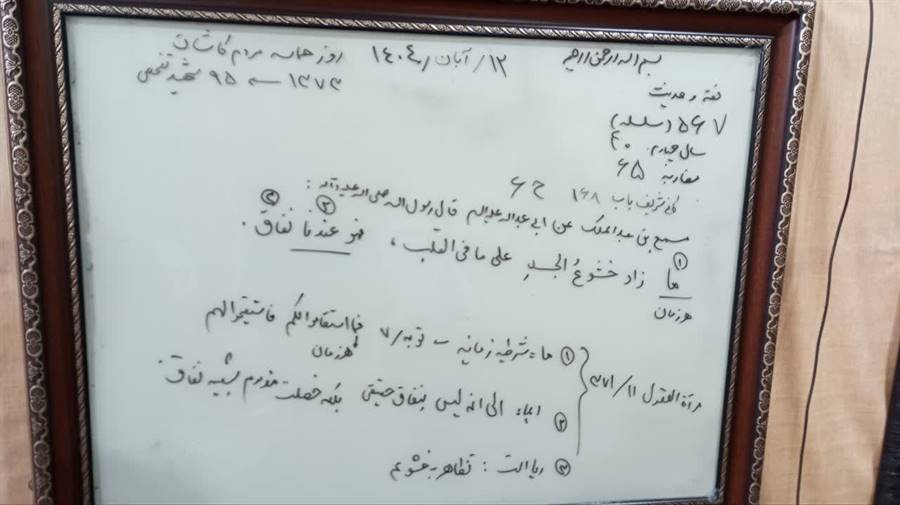 بسم الله الرحمن الرحیم
۱۲/ آبان ۱۴۰۴
روز حماسه مردم کاشان
۱۳۷۳ ــ ۹۵ شهید
فقه و حدیث
۵۶۷ (سلسله)
سال چهارم ۴۰
مضاربه ۶۵
کافی شریف باب ۱۶۸ ح ۶
مسمع بن عبدالملک عن ابی عبدالله علیه السلام قال رسول الله صلی الله علیه و آله :
① ما زاد خشوعُ الجسدِ علی ما فی القلب ، فهو عندنا ② نفاق ③ .
هر زمان
مرآة العقول ۱۱/ ۳۷۱
① ما = شرطیه زمانیه ــ توبه/۷ فما استقاموا لکم فاستقیموا لهم
هر زمان
② ایماء الی انه لیس بنفاق حقیقی بلکه خصلت مذموم شبیه نفاق .
③ ریا است : تظاهر به خشوع